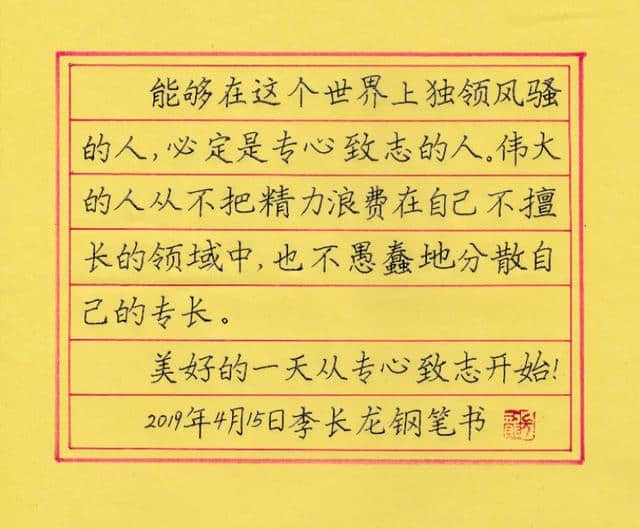 能够在这个世界上独领风骚
的人,必定是专心致志的人。伟大
的人从不把精力浪费在自己不擅
长的领域中,也不愚蠢地分散自
己的专长。
美好的一天从专心致志开始!
2019年4月15日李长龙钢笔书